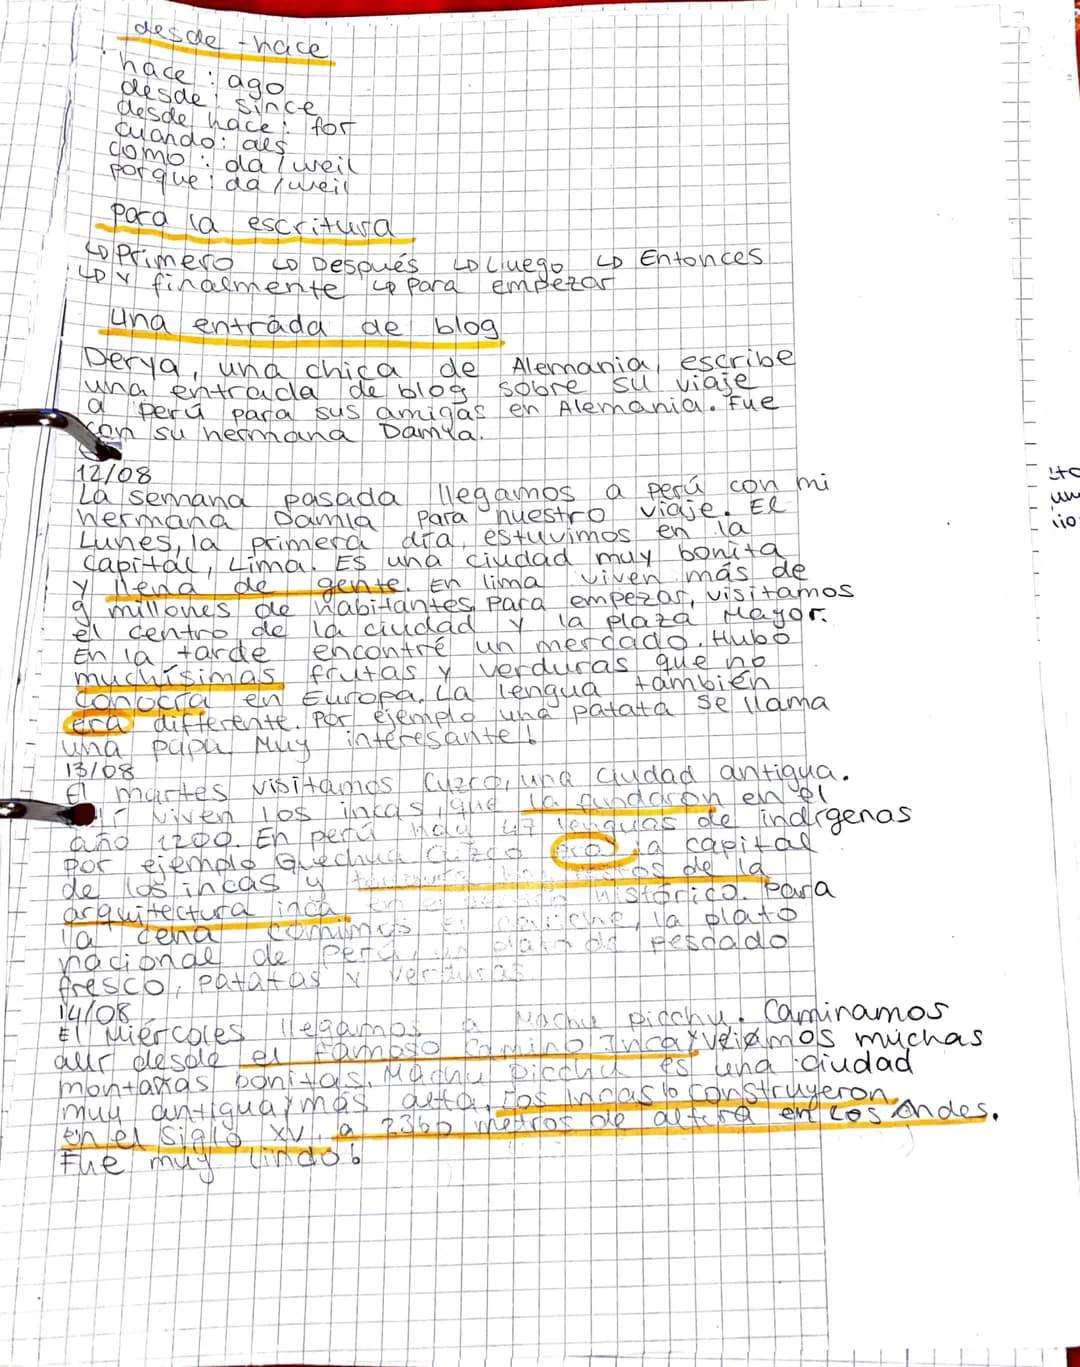 desde - hace
hace : ago
desde : since
desde hace : for
cuando : als
como : da / weil
porque : da / weil
para la escritura
↳ Primero ↳ Después ↳ Luego ↳ Entonces
↳ y finalmente ↳ para empezar
una entrada de blog
Derya, una chica de Alemania, escribe
una entrada de blog sobre su viaje
a perú para sus amigas en Alemania. Fue
con su hermana Damla.
12/08
La semana pasada llegamos a perú con mi
hermana Damla para nuestro viaje. El
Lunes, la primera día, estuvimos en la
capital, Lima. Es una ciudad muy bonita
y llena de gente. En lima viven más de
9 millones de habitantes. Para empezar, visitamos
el centro de la ciudad y la plaza Mayor.
En la tarde encontré un mercado. Hubo
muchísimas frutas y verduras que no
conocía en Europa. La lengua también
era differente. Por ejemplo una patata se llama
una papa. Muy interesante!
13/08
El martes visitamos Cuzco, una ciudad antigua.
viven los incas que la fundaron en el
año 1200. En perú hay 47 lenguas de indígenas
por ejemplo Quechua. Cuzco era la capital
de los incas y de la
arquitectura inca histórico. Para
la cena comimos el ceviche, la plato
nacionde de Perú, un plato de pesdado
fresco, patatas y verduras
14/08
El Miércoles llegamos a Machu picchu. Caminamos
allí desde el famoso Camino Inca y veíamos muchas
montañas bonitas. Machu picchu es una ciudad
muy antigua, más alta. Los Incas lo construyeron
en el siglo XV, a 2360 metros de altura en los Andes.
Fue muy lindo!